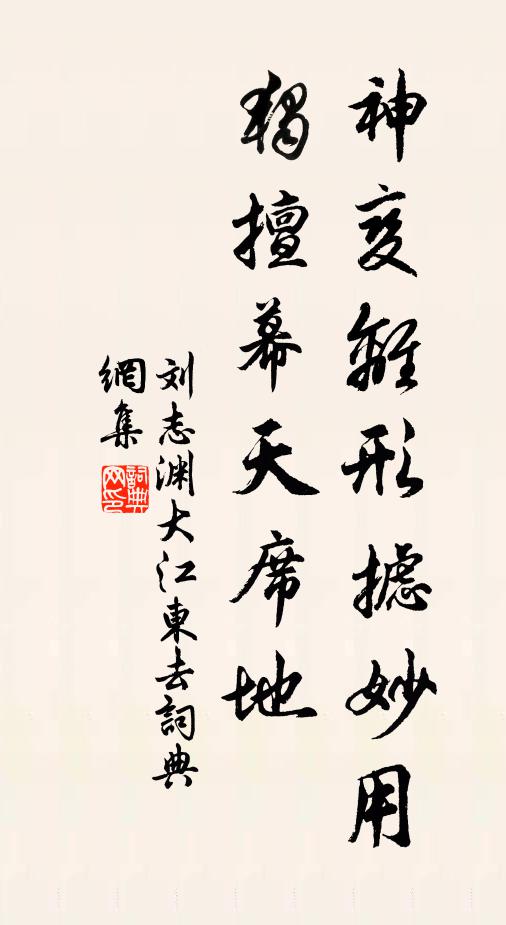 神变離形摅妙用
獨擅幕天席地
刘志渊大江東去詞典
網集
詞典
网印